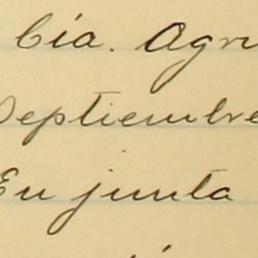 Cia. Agri
Septiembre
En junta